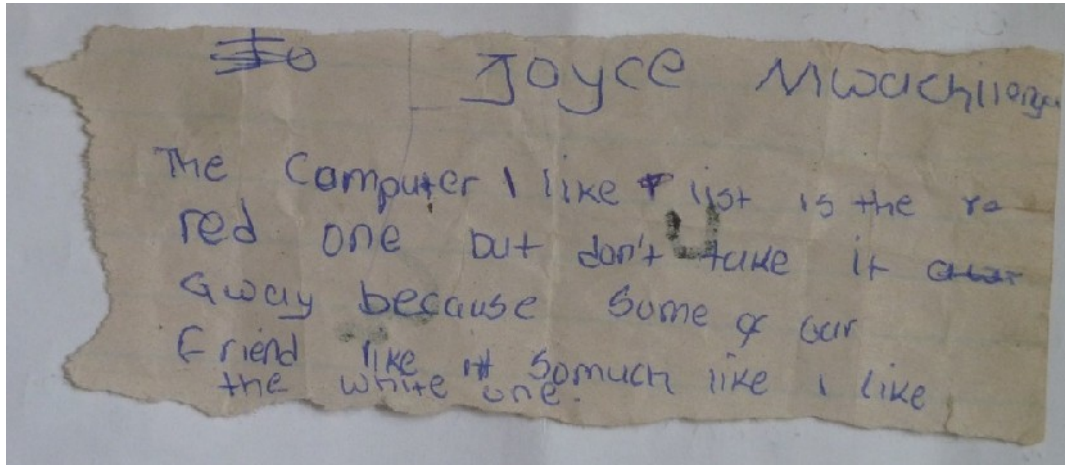 To Joyce Mwachilenga
The Computer I like list is the re
red one but don't take it
away because some of our
Friend like it somuch like I like
the white one.